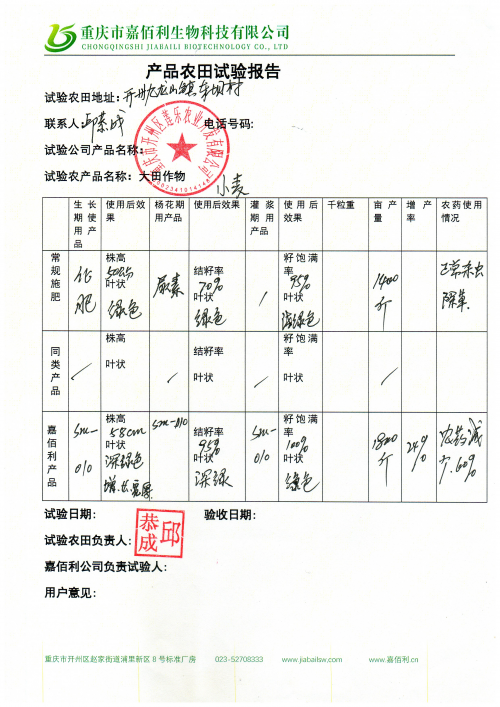 重庆市嘉佰利生物科技有限公司
CHONGQINGSHI JIABAILI BIOTECHNOLOGY CO., LTD
产品农田试验报告
试验农田地址：开州九龙山镇东坝村
联系人：邱恭成 电话号码：
试验公司产品名称：
试验农产品名称：大田作物 小麦
重庆市开州区莲乐农业开发有限公司
生长期使用产品 使用后效果 杨花期用产品 使用后效果 灌浆期用产品 使用后效果 千粒重 亩产量 增产率 农药使用情况
常规施肥 化肥 株高 50cm 叶状 绿色 尿素 结籽率 70% 叶状 绿色 / 籽饱满率 95% 叶状 绿色 1400斤 正常杀虫除草
同类产品 / 株高 叶状 / 结籽率 叶状 / 籽饱满率 叶状 / /
嘉佰利产品 SM-010 株高 58cm 叶状 深绿色 SM-010 结籽率 95% 叶状 深绿 SM-010 籽饱满率 100% 叶状 绿色 1800斤 24% 农药减少60%
试验日期： 验收日期：
试验农田负责人： 邱恭成
嘉佰利公司负责试验人：
用户意见：
重庆市开州区赵家街道浦里新区8号标准厂房 023-52708333 www.jiabailsw.com www.嘉佰利.cn